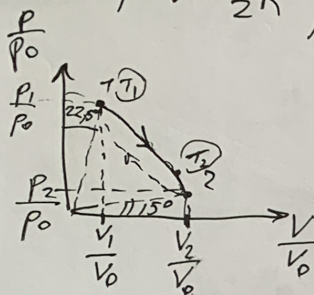 2
P/P0
1 T1
P1/P0
22,5°
T2
2
P2/P0
15°
V1/V0
V2/V0
V/V0